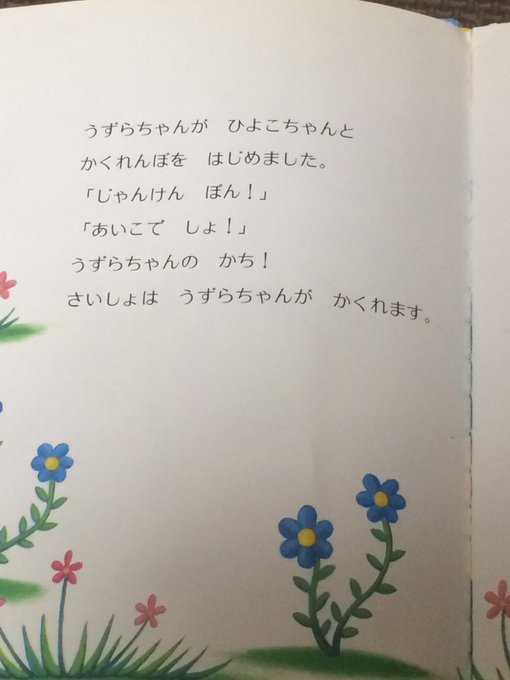 うずらちゃんが　ひよこちゃんと
かくれんぼを　はじめました。
「じゃんけん　ぽん！」
「あいこで　しょ！」
うずらちゃんの　かち！
さいしょは　うずらちゃんが　かくれます。